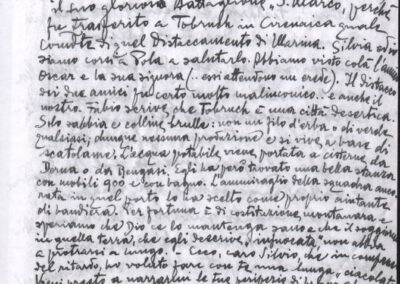 il suo glorioso Battaglione "S. Marco", perchè
fu trasferito a Tobruch in Cirenaica quale
Com.te di quel Distaccamento di Marina. Silvia ed io
siamo corsi a Pola a salutarlo. Abbiamo visto colà l'amico
Oscar e la sua signora (.. essi attendono un erede). Il distacco
dei due amici fu certo molto malinconico.. e anche il
nostro. Fabio scrive che Tobruch è una città desertica.
Solo sabbia e colline brulle: non un filo d'erba o di verde
qualsiasi; dunque nessuna protezione e si vive a base di
scatolame. L'acqua potabile viene portata a cisterne da
Derna o da Bengasi. Egli ha però trovato una bella stanza
con mobili 900 e con bagno. L'ammiraglio della squadra anco-
rata in quel porto lo ha scelto come proprio aiutante
di bandiera. Per fortuna è di costituzione montanara e
speriamo che Dio ce lo mantenga sano e che il soggiorno
in quella terra, che egli descrive, infuocata, non abbia
a protrarsi a lungo. - Ecco, caro Silvio, che in compenso
del ritardo, ho voluto fare con te una lunga
presto a narrarmi le tue peripezie di